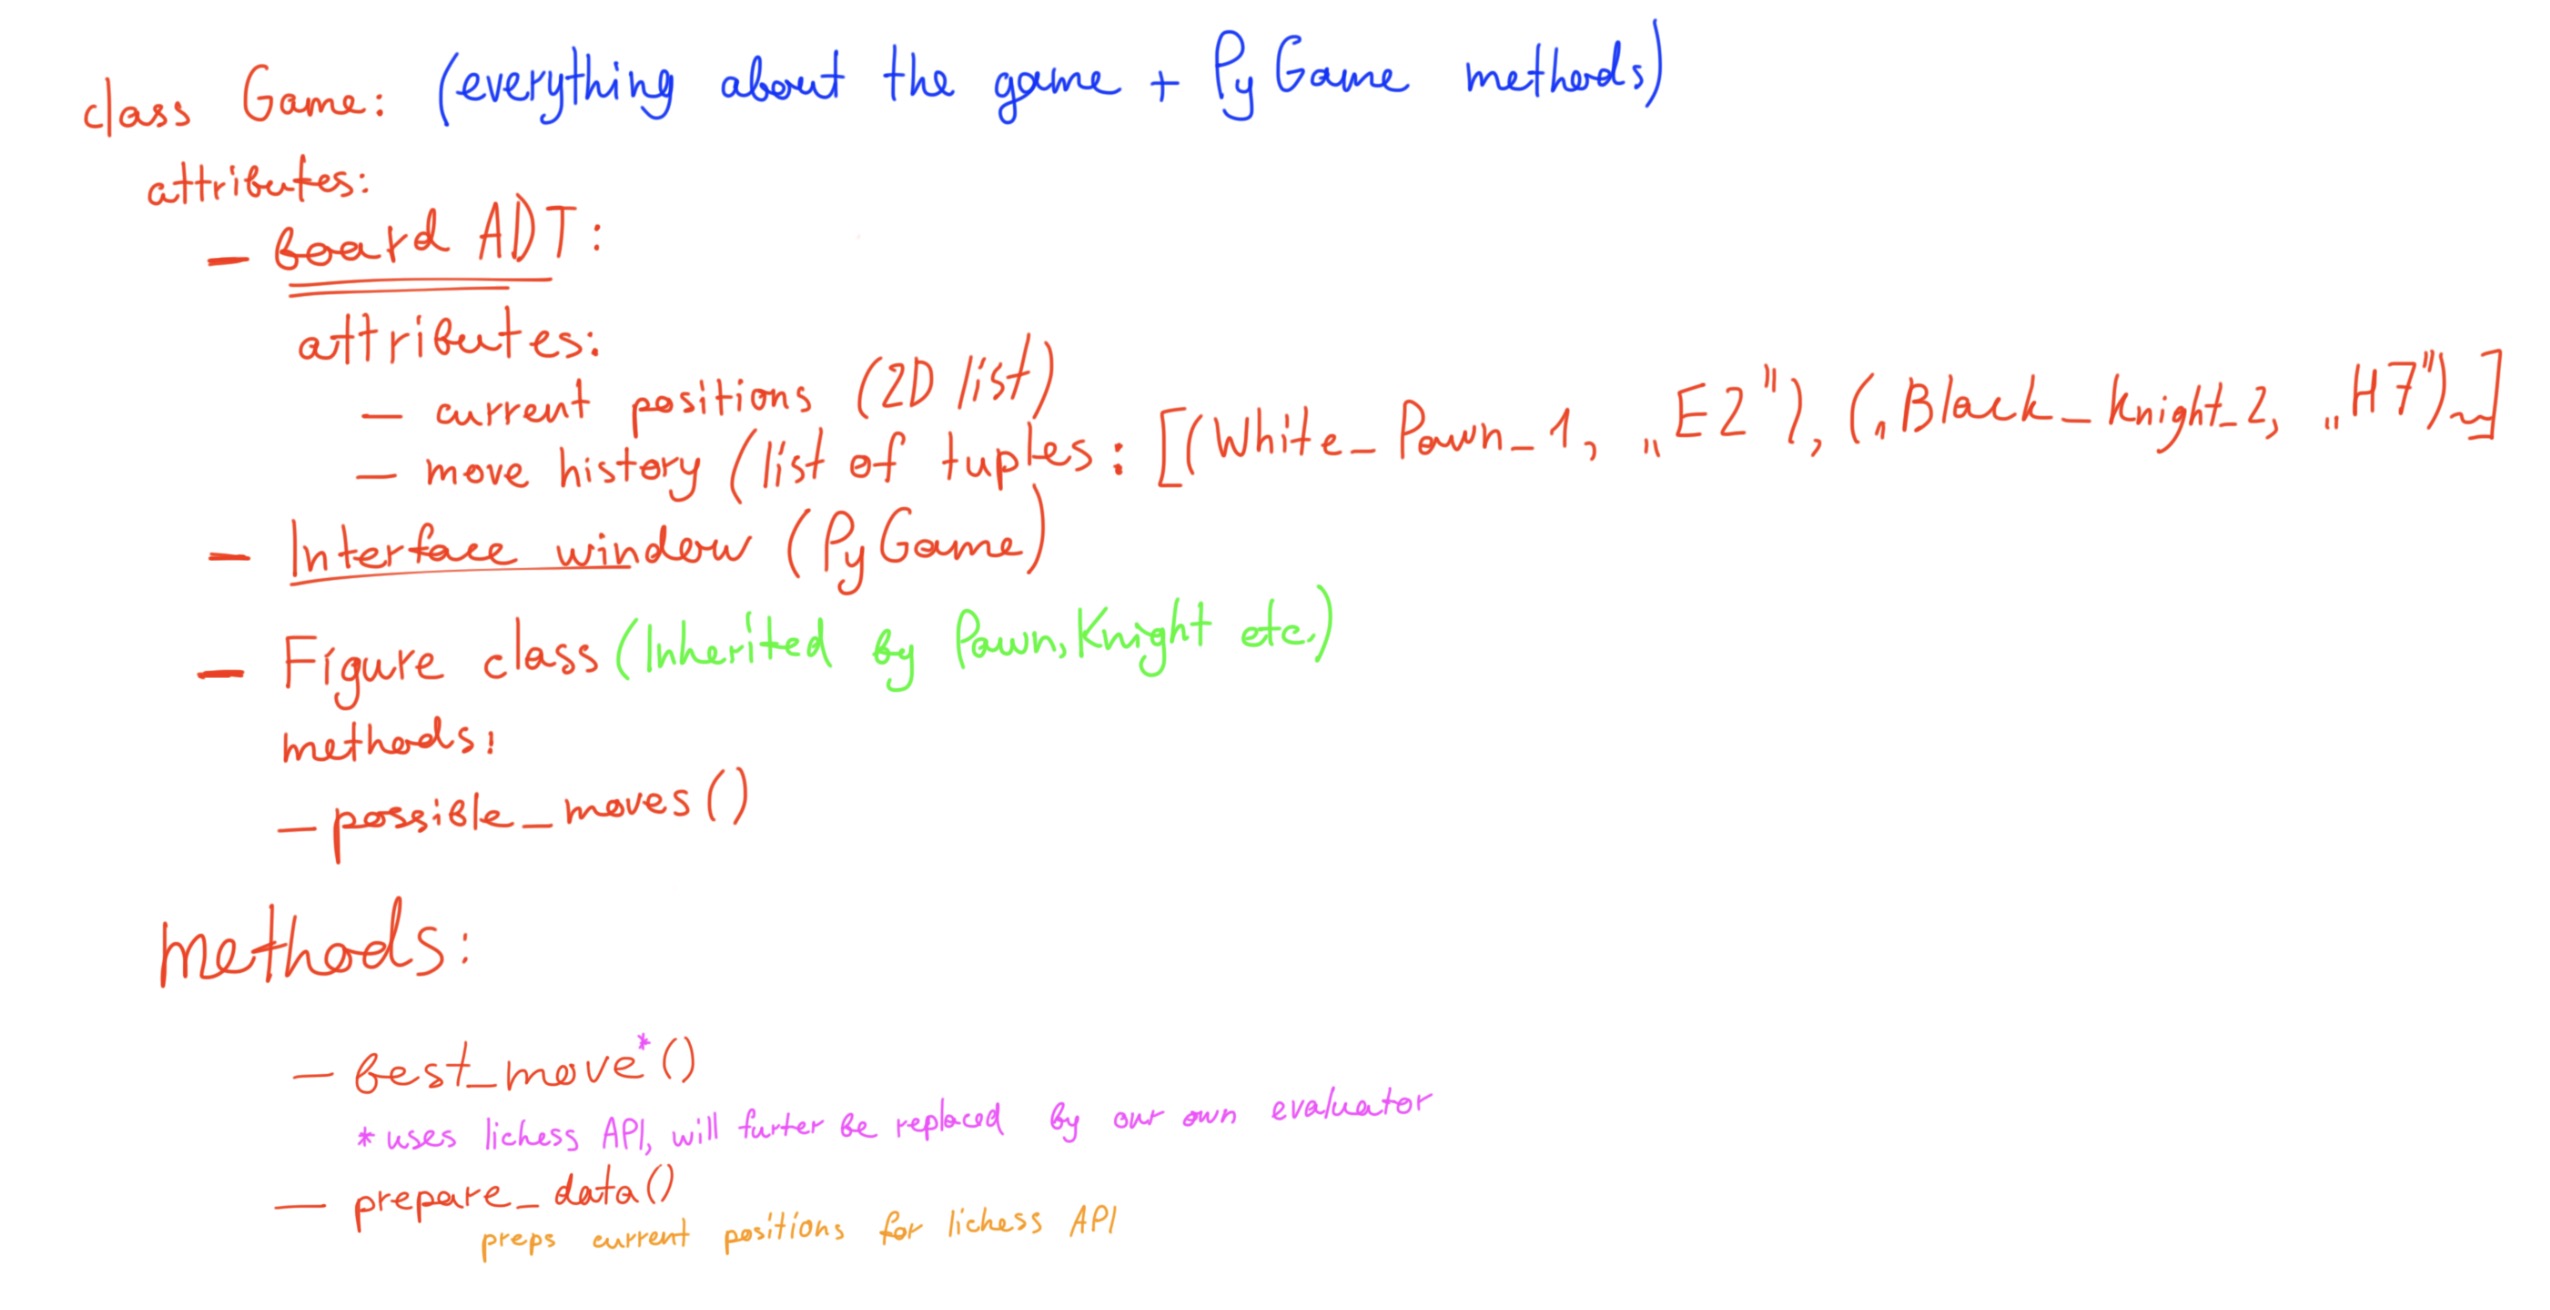 class Game: (everything about the game + PyGame methods)
attributes:
- board ADT:
attributes:
- current positions (2D list)
- move history (list of tuples: [(White_Pawn_1, „E2"), („Black_Knight_2, „H7")~]
- Interface window (PyGame)
- Figure class (Inherited by Pawn, Knight etc.)
methods:
- possible_moves()
methods:
- best_move*()
* uses lichess API, will furter be replaced by our own evaluator
- prepare_data()
preps current positions for lichess API